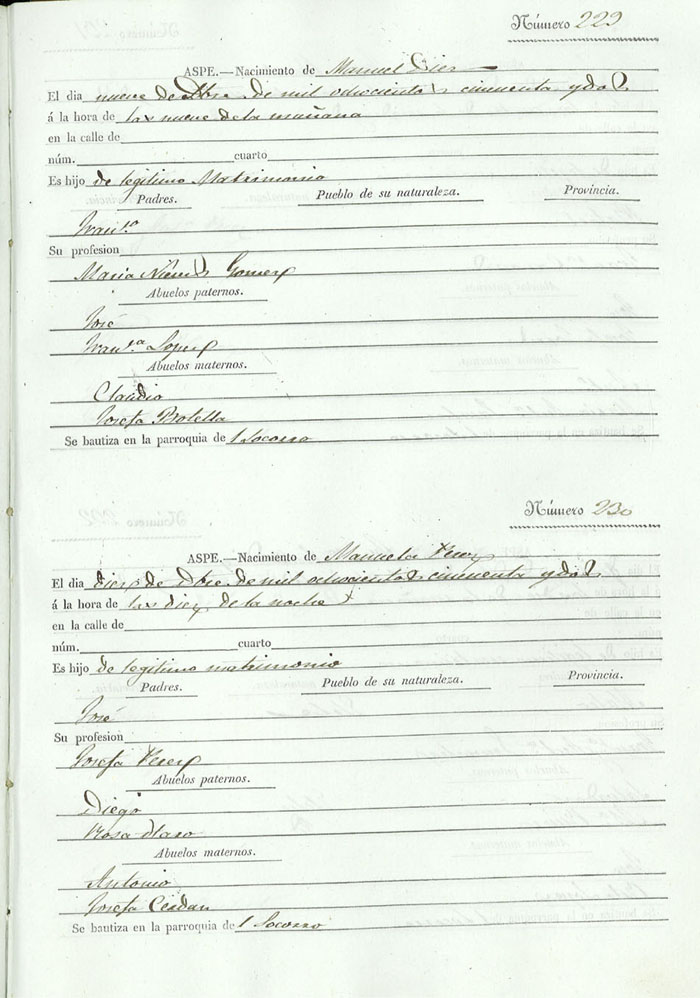 Número 229
ASPE.—Nacimiento de Manuel Dies
El dia nueve de Dbre de mil ochocientos cincuenta y dos
á la hora de las nueve de la mañana
en la calle de
núm. cuarto
Es hijo de legitimo Matrimonio
Padres. Pueblo de su naturaleza. Provincia.
Franco.
Su profesion
Maria Nieves Gomez
Abuelos paternos.
José
Franca. Lopez
Abuelos maternos.
Claudio
Josefa Botella
Se bautiza en la parroquia de l Socorro
Número 230
ASPE.—Nacimiento de Manuela Perez
El dia diez de Dbre de mil ochocientos cincuenta y dos
á la hora de las diez de la noche
en la calle de
núm. cuarto
Es hijo de legitimo matrimonio
Padres. Pueblo de su naturaleza. Provincia.
José
Su profesion
Josefa Perez
Abuelos paternos.
Diego
Rosa
Abuelos maternos.
Antonio
Josefa Cerdan
Se bautiza en la parroquia de l Socorro